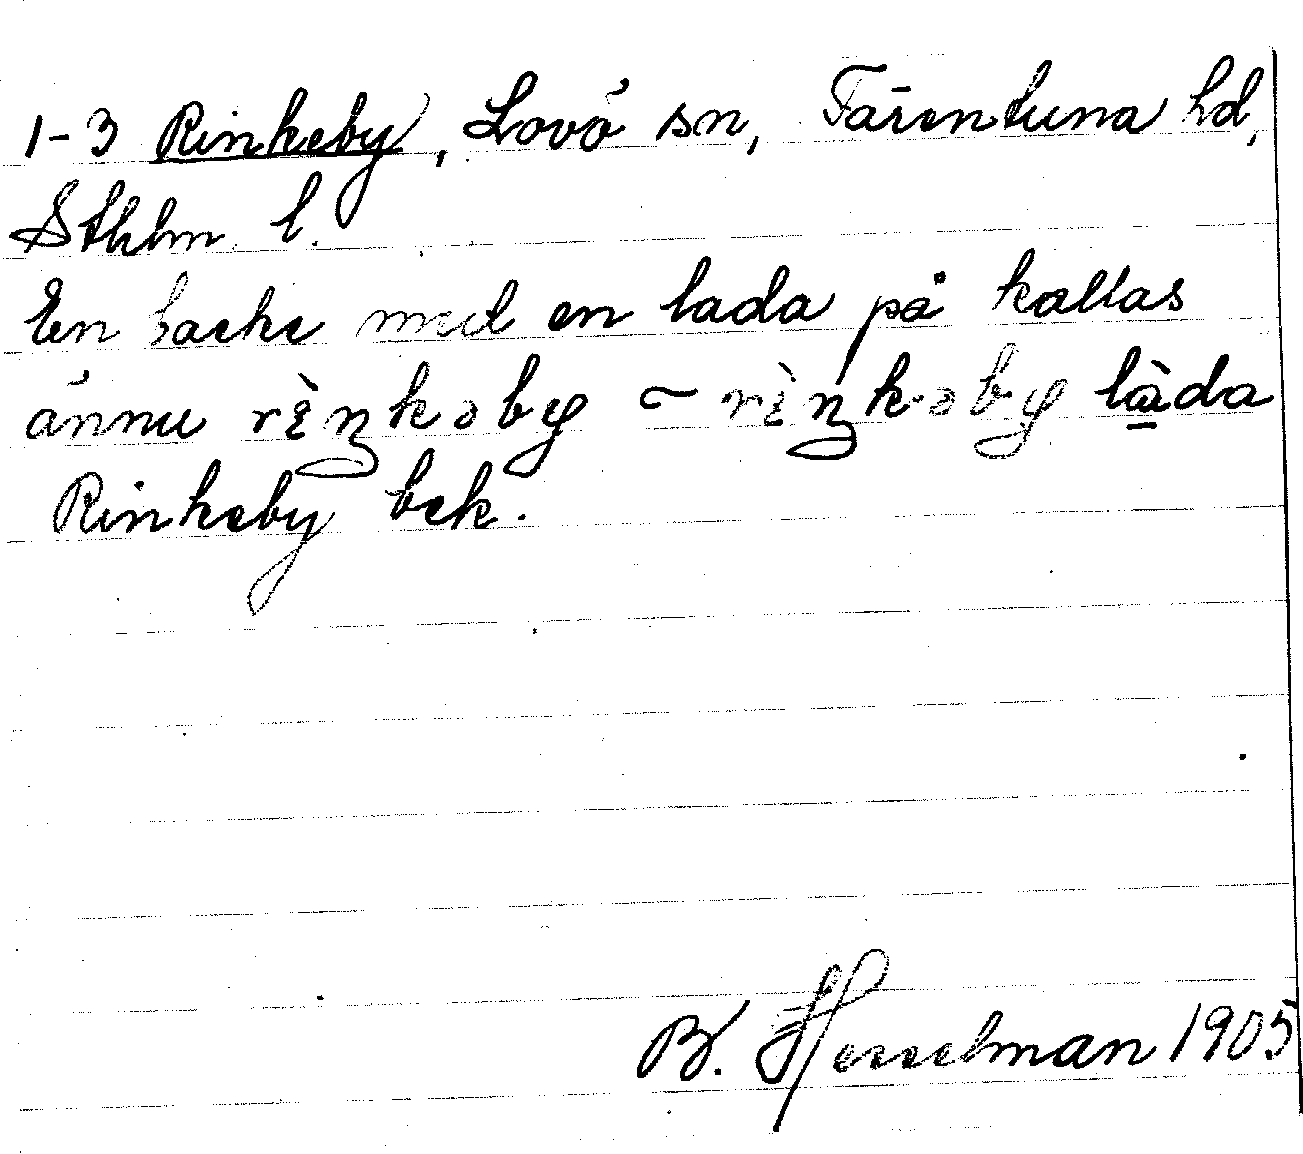 1-3 Rinkeby, Lovö sn, Färentuna hd,
Sthlm l.
En backe med en lada på kallas
ännu rìŋkəby ~ rìŋkəby làda
Rinkeby bck.
B. Hesselman 1905